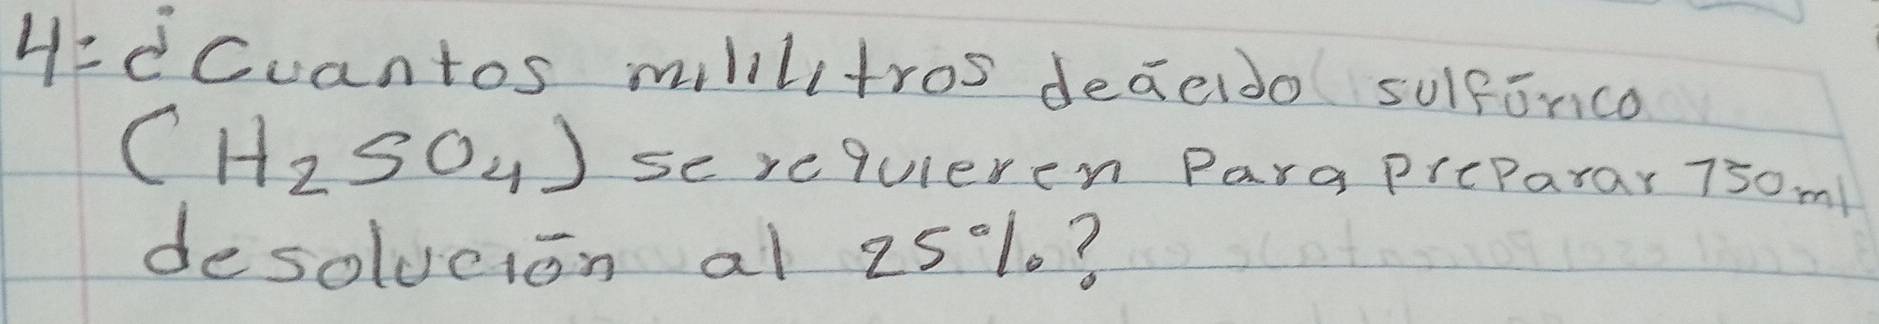 4= ¿Cuantos mililitros deācido sulfūrico
(H₂SO₄) se requieren Para PreParar 750ml
desoluciōn al 25%?